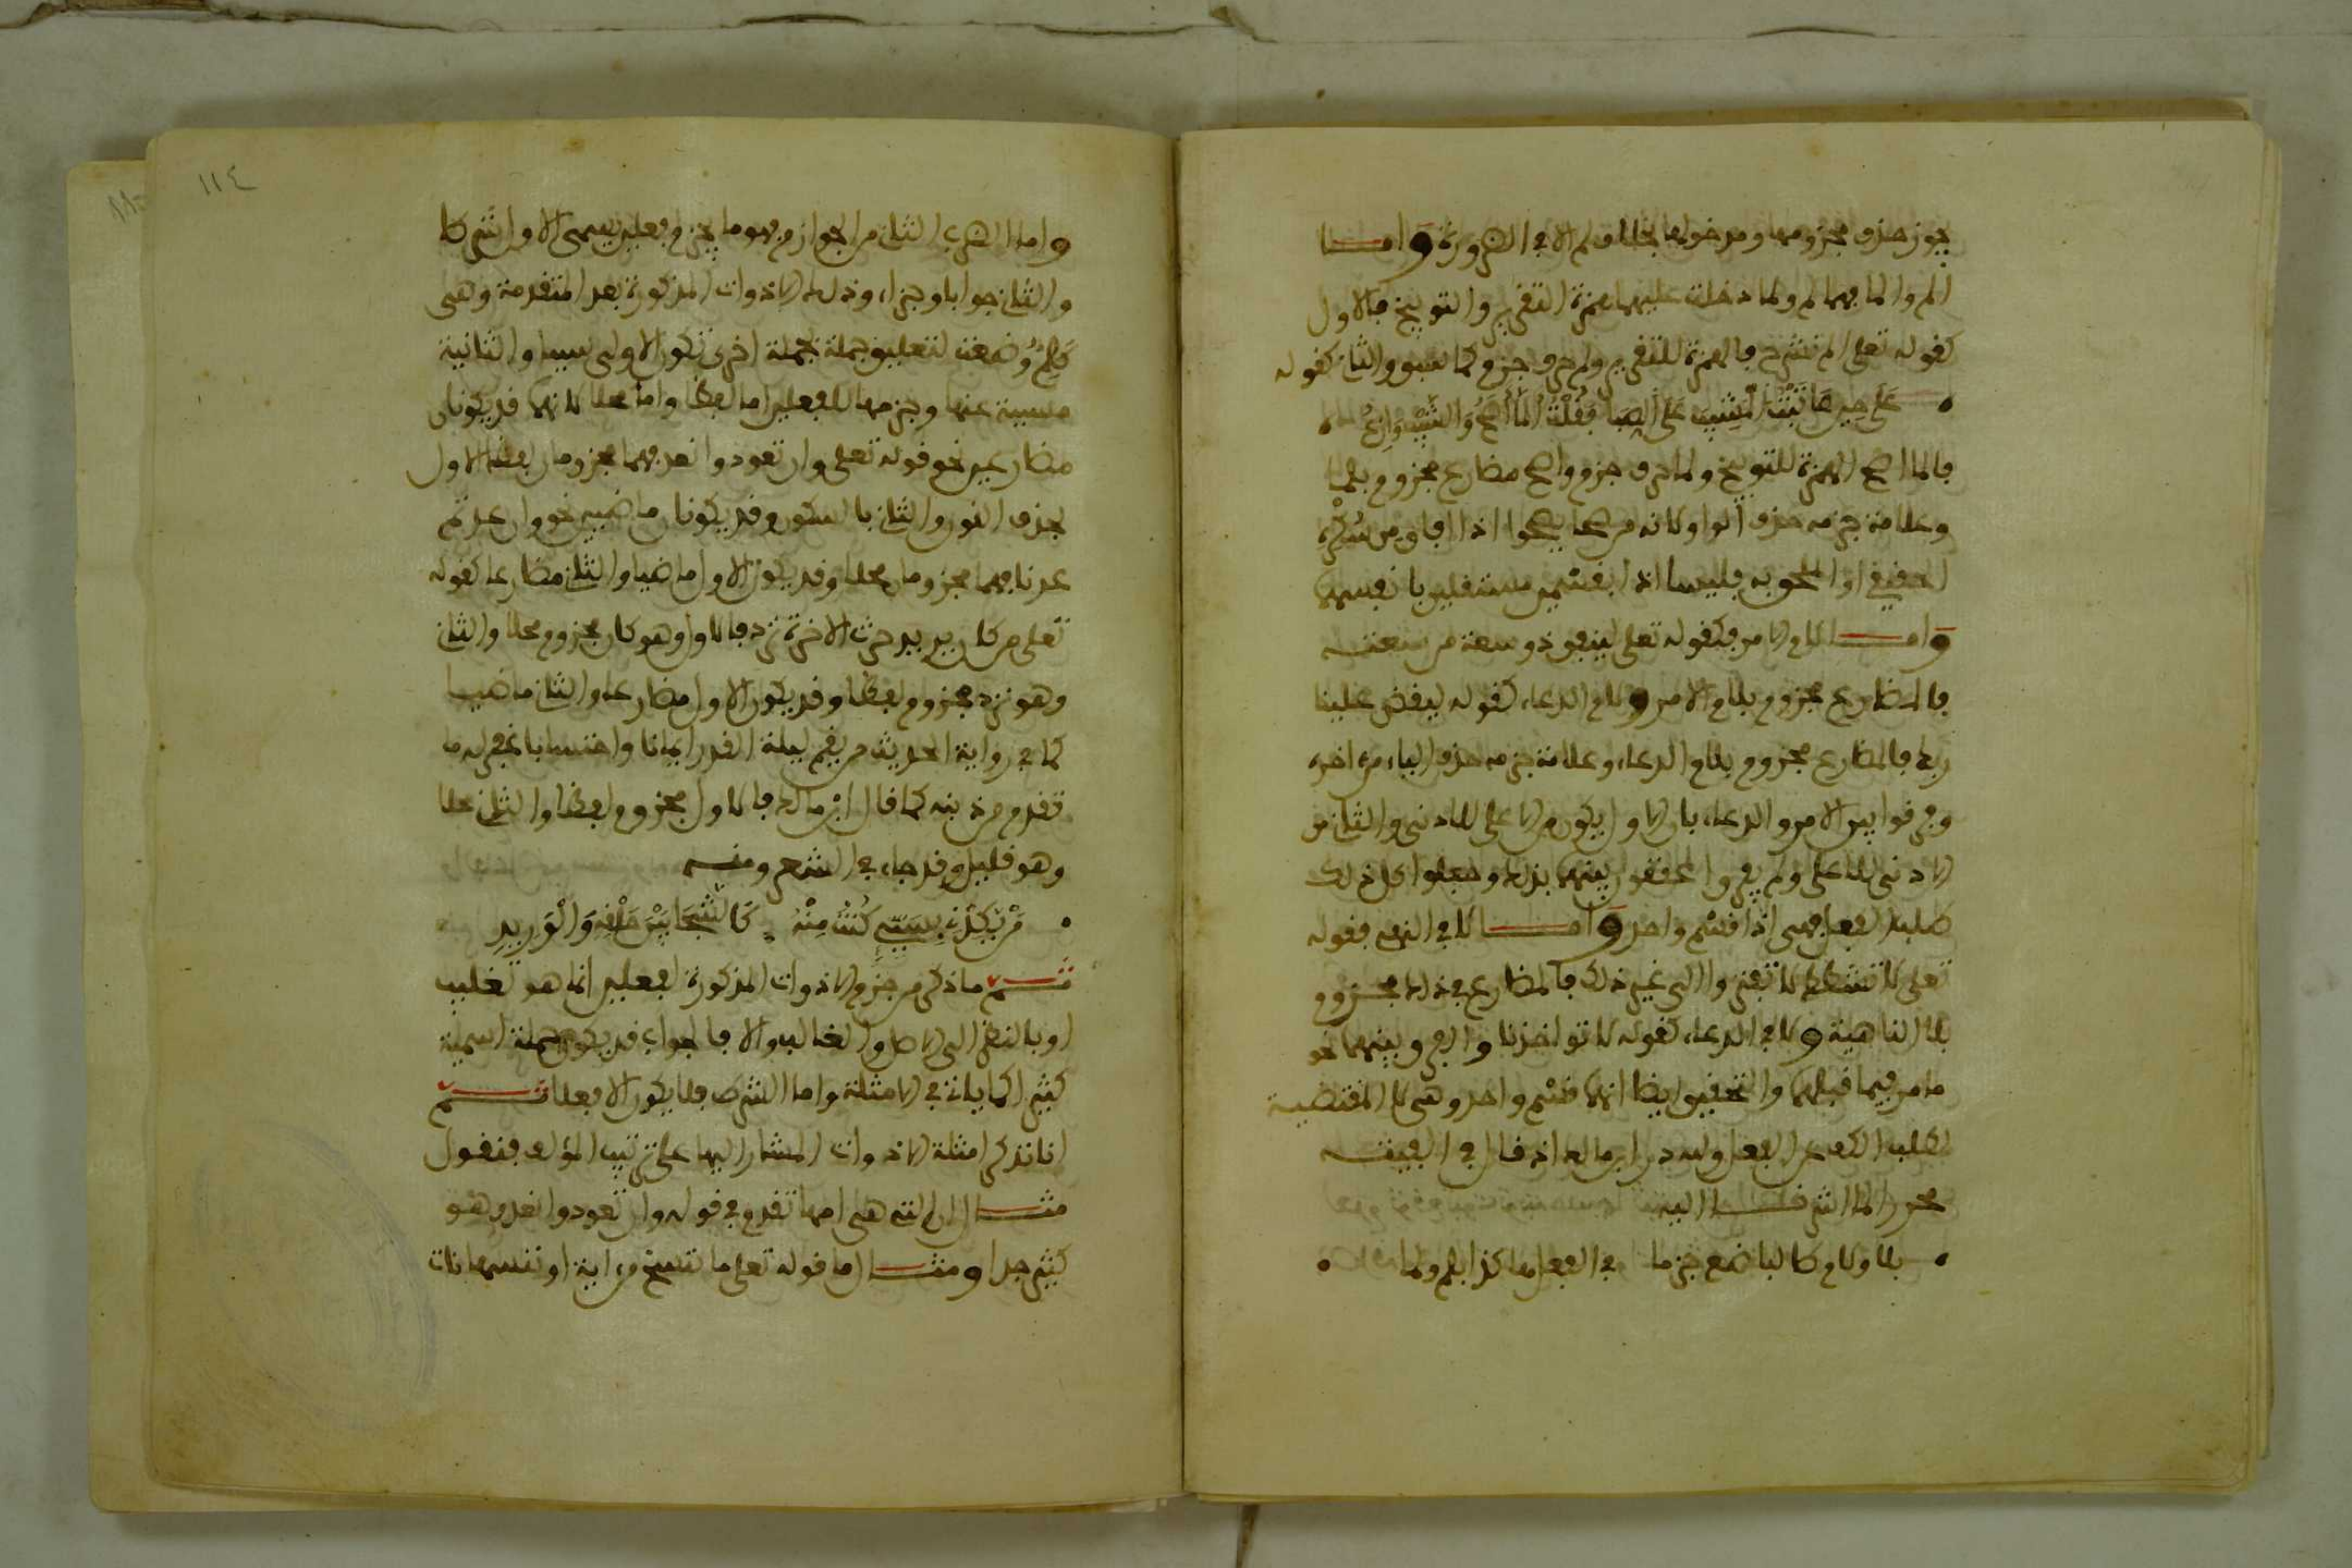 يجوز حذف مجزومها ومدخولها بخلاف لم الا في الضرورة واما
الم والما فهما لم ولما دخلت عليهما همزة التقرير والتوبيخ فالاول
كقوله تعلى الم نشرح فالهمزة للتقرير ولم حرف جزم كما سبق والثان كقوله
على حين عاتبت المشيب على الصبا فقلت الما اصح والشيب وازع
فالما اصح الهمزة للتوبيخ ولما حرف جزم واصح مضارع مجزوم بلما
وعلامة جزمه حذف الواو لانه من صحا يصحوا اذا افاق من سكره
الحقيقي او الملحق به فليسا اذا بقسمين مستقلين بانفسهما
واما لام الامر فكقوله تعلى لينفق ذو سعة من سعته
فالمضارع مجزوم بلام الامر ولام الدعاء كقوله ليقض علينا
ربك فالمضارع مجزوم بلام الدعاء وعلامة جزمه حذف الياء من اخره
وفرقوا بين الامر والدعاء بان الاول يكون من الاعلى للادنى والثان من
الادنى للاعلى ولم يفرق المحققون بينهما بذلك وجعلوا كل ذلك
طلب الفعل فهي اذا قسم واحد واما لا في النهي فقوله
تعلى لا تشطط لا تفتروا الى غير ذلك فالمضارع في ذلك مجزوم
بلا الناهية ولا في الدعاء كقوله لا تواخذنا والفرق بينهما نحو
ما مر فيما قبلهما والتحقيق ايضا انهما قسم واحد وهي لا المقتضية
لطلب الكف عن الفعل ولله در ابن مالك اذ قال في الفيته
محررا لما اشرنا اليه
بلا ولام طالبا ضع جزما في الفعل هكذا بلم ولما
١١٤
واما الضرب الثان من الجوازم فهو ما يجزم فعلين يسمى الاول شرطا
والثان جوابا وجزاء وذلك الادوات المذكورة بعد المتقدمة وهي
كلم وضعت لتعليق جملة بجملة اخرى تكون الاولى سببا والثانية
مسببة عنها وجزمها للفعلين اما لفظا واما محلا لانهما قد يكونان
مضارعين نحو قوله تعلى وان تعودوا نعد فهما مجزومان لفظا الاول
بحذف النون والثان بالسكون وقد يكونان ماضيين نحو وان عدتم
عدنا فهما مجزومان محلا وقد يكون الاول ماضيا والثان مضارعا كقوله
تعلى من كان يريد حرث الاخرة نزد فالاول وهو كان مجزوم محلا والثان
وهو نزد مجزوم لفظا وقد يكون الاول مضارعا والثان ماضيا
كما في رواية الحديث من يقم ليلة القدر ايمانا واحتسابا غفر له ما
تقدم من ذنبه كما قال ابن مالك فالاول مجزوم لفظا والثان محلا
وهو قليل وقد جاء في الشعر ومنه
من يكدني بسيئ كنت منه كالشجا بين حلقه والوريد
ثم ما ذكر من جزم الادوات المذكورة لفعلين انما هو تغليب
او بالنظر الى الاصل والغالب والا فالجواب قد يكون جملة اسمية
كثيرا كما ياتي في الامثلة واما الشرط فلا يكون الا فعلا ثم
انا نذكر امثلة الادوات المشار اليها على ترتيب المؤلف فنقول
مثال ان التي هي امها تقدم في قوله وان تعودوا نعد وهو
كثير جدا ومثال ما قوله تعلى ما ننسخ من اية او ننسها نات